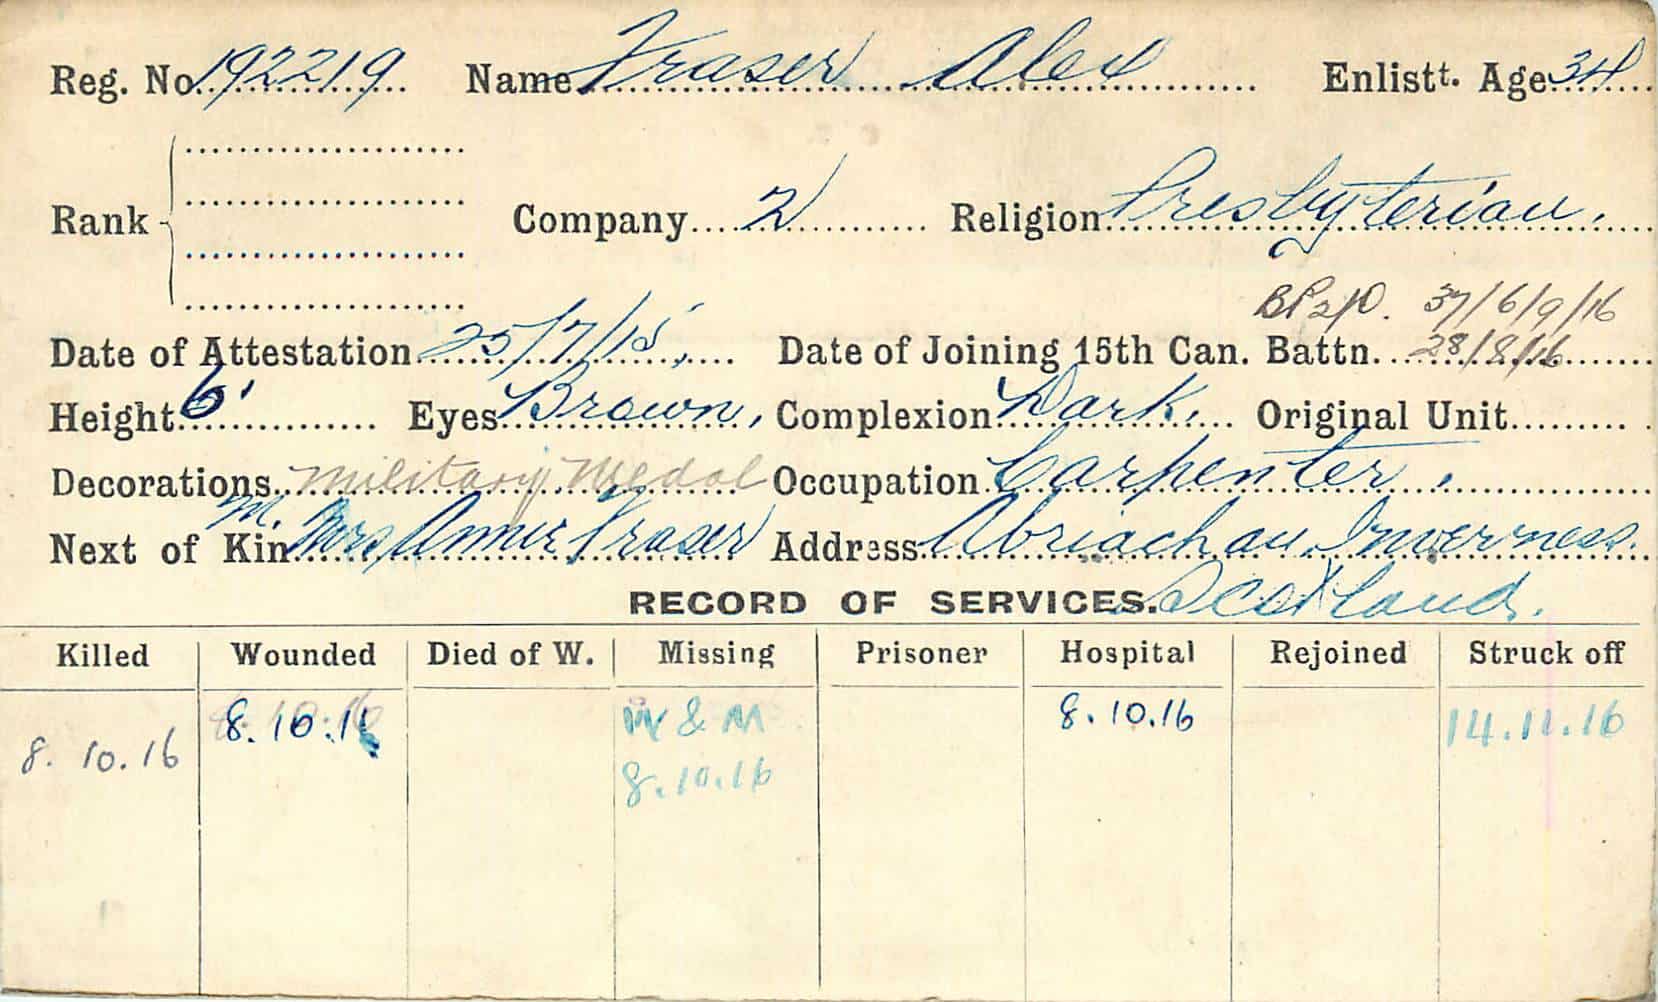 Reg. No. 192219 Name Fraser Alex Enlistt. Age 34
Rank Company 2 Religion Presbyterian.
37/6/9/16
Date of Attestation 25/7/15. Date of Joining 15th Can. Battn. 28/8/16
Height 6' Eyes Brown, Complexion Dark. Original Unit
Decorations Military Medal Occupation Carpenter.
M.
Next of Kin Mrs, Annie Fraser Address Abriachan, Inverness.
RECORD OF SERVICES. Scotland.
Killed Wounded Died of W. Missing Prisoner Hospital Rejoined Struck off
8.10.16 W & M 8.10.16 14.11.16
8.10.16 8.10.16